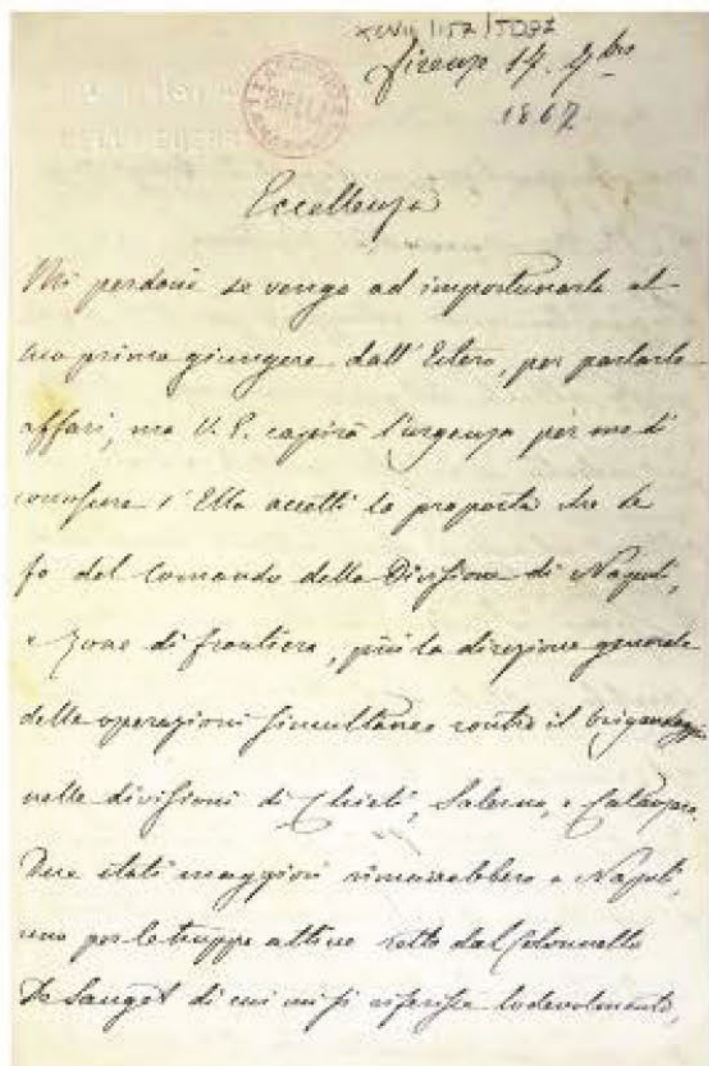 XCVII/157/5092
Firenze 14. 9bre
1867
BIELLA
Eccellenza
Mi perdoni se vengo ad importunarla al
suo primo giungere dall'Estero, per parlarle
affari, ma V. E. capirà l'urgenza per me di
conoscere s'Ella accetti la proposta che le
fo del Comando della Divisione di Napoli,
e Zone di frontiera, più la direzione generale
delle operazioni simultanee contro il brigantaggio
nelle divisioni di Chieti, Salerno, e Catanzaro.
Due stati maggiori rimarrebbero a Napoli,
uno per le truppe attive retto dal Colonnello
De Sauget di cui mi si riferisce lodevolmente,